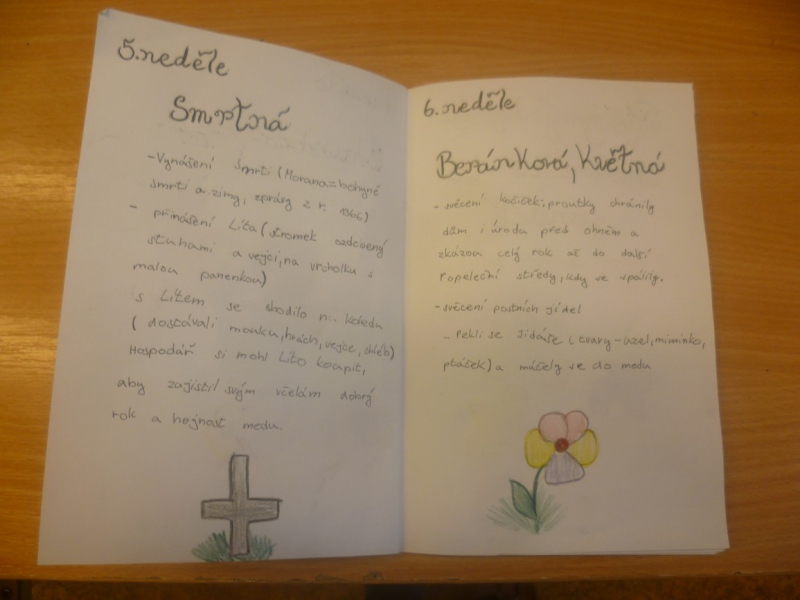 5. neděle
Smrtná
- Vynášení Smrti (Morana = bohyně
smrti a zimy, zprávy z r. 1366)
- přinášení Líta (stromek ozdobený
stuhami a vejci, na vrcholku s
malou panenkou)
s Lítem se chodilo n.. koledu
(dostávali mouku, hrách, vejce, chléb)
Hospodář si mohl Líto koupit,
aby zajistil svým včelám dobrý
rok a hojnost medu.
6. neděle
Beránková, Květná
- svěcení kočiček: proutky chránily
dům i úrodu před ohněm a
zkázou celý rok až do další
Popeleční středy, kdy se spálily.
- svěcení postních jídel
- Pekli se Jidáše (tvary - uzel, miminko,
ptáček) a máčely se do medu